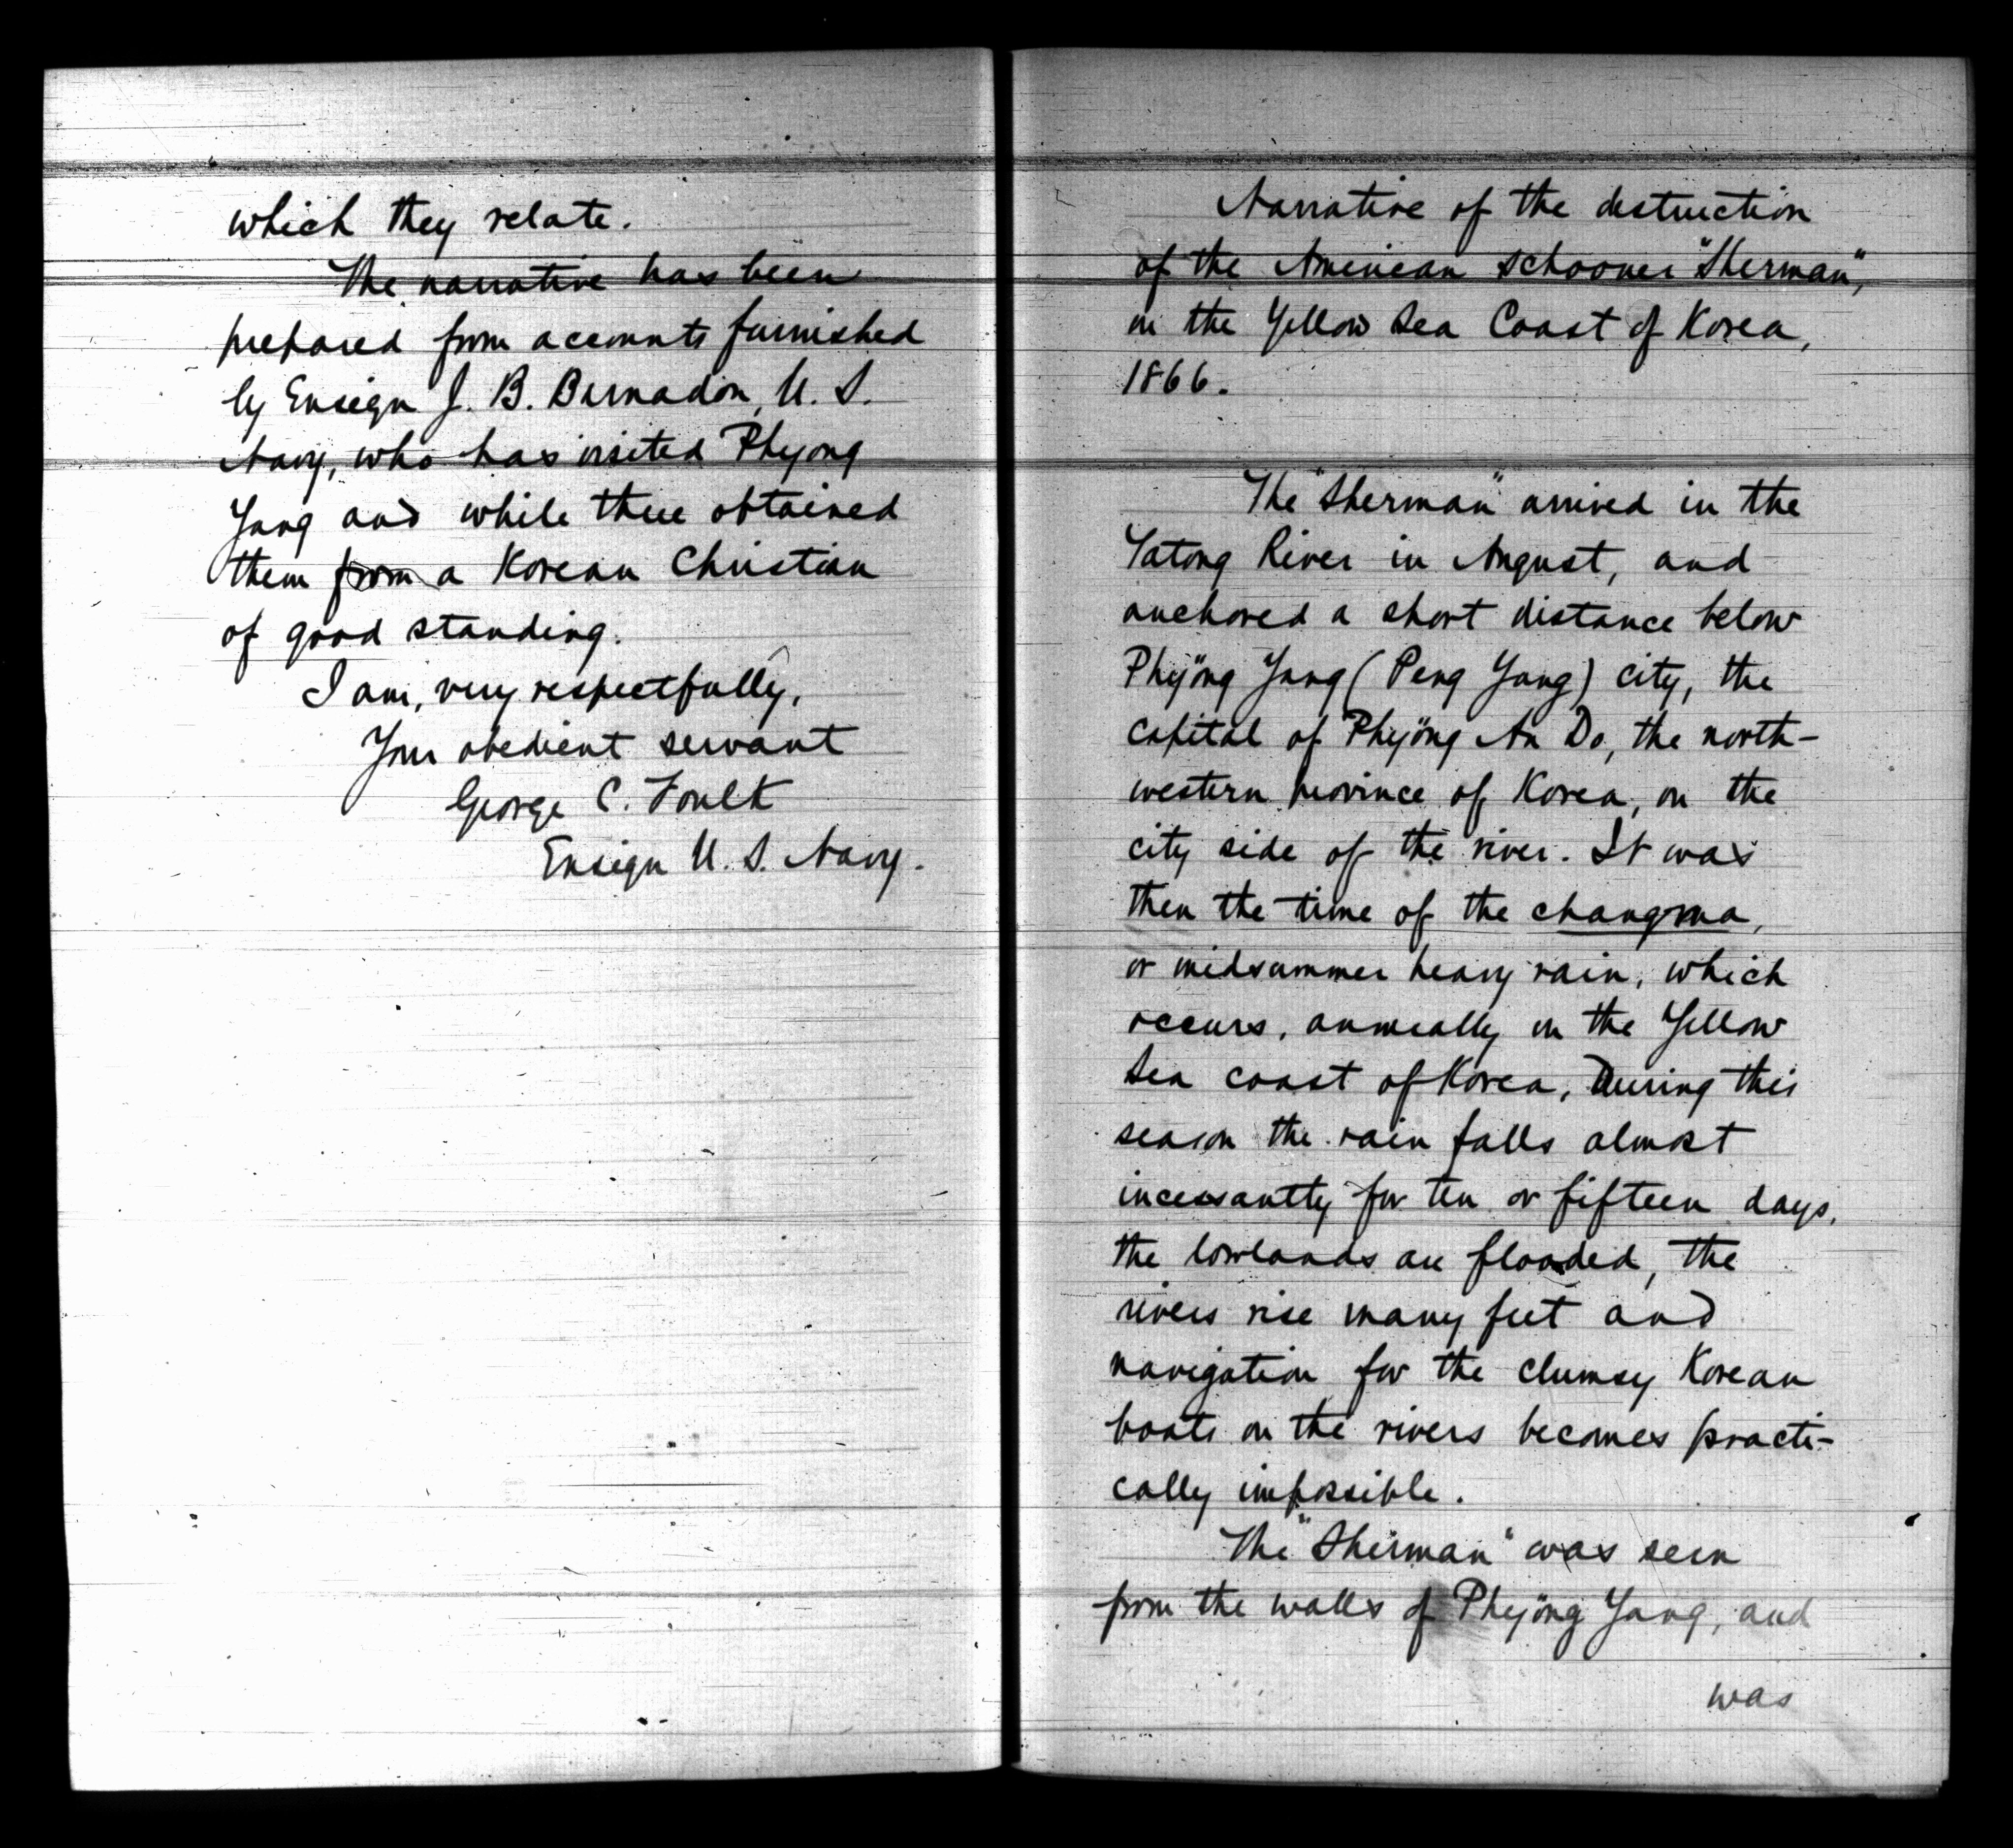 which they relate.
The narrative has been
prepared from accounts furnished
by Ensign J. B. Bernadon, U. S.
Navy, who has visited Phyong
Yang and while there obtained
them from a Korean Christian
of good standing.
I am, very respectfully,
Your obedient servant
George C. Foulk
Ensign U. S. Navy.
Narrative of the destruction
of the American schooner "Sherman",
on the Yellow Sea Coast of Korea,
1866.
The "Sherman" arrived in the
Tatong River in August, and
anchored a short distance below
Phyöng Yang (Peng Yang) city, the
capital of Phyöng An Do, the north-
western province of Korea, on the
city side of the river. It was
then the time of the changma,
or midsummer heavy rain, which
occurs, annually on the Yellow
Sea coast of Korea, During this
season the rain falls almost
incessantly for ten or fifteen days,
the lowlands are flooded, the
rivers rise many feet and
navigation for the clumsy Korean
boats on the rivers becomes practi-
cally impossible.
The "Sherman" was seen
from the walls of Phyöng Yang, and
was